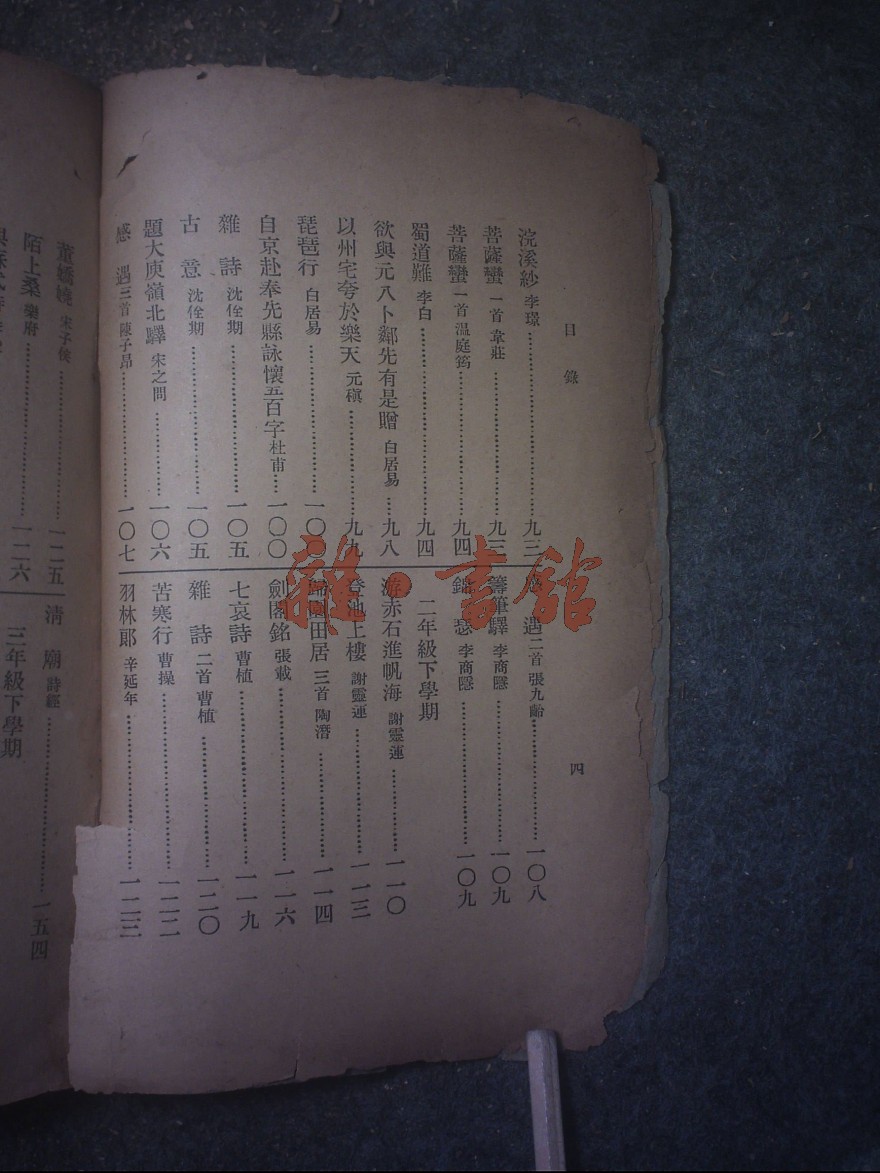 目錄
浣溪紗 李璟……九三
菩薩蠻 一首 韋莊……九三
菩薩蠻 一首 溫庭筠……九四
蜀道難 李白……九四
欲與元八卜鄰先有是贈 白居易……九八
以州宅夸於樂天 元稹……九九
琵琶行 白居易……一〇〇
自京赴奉先縣詠懷五百字 杜甫……一〇〇
雜詩 沈佺期……一〇五
古意 沈佺期……一〇五
題大庾嶺北驛 宋之問……一〇六
感遇 三首 陳子昂……一〇七
遇 二首 張九齡……一〇八
籌筆驛 李商隱……一〇九
錦瑟 李商隱……一〇九
二年級下學期
游赤石進帆海 謝靈運……一一〇
登池上樓 謝靈運……一一三
歸園田居 三首 陶潛……一一四
劍閣銘 張載……一一六
七哀詩 曹植……一一九
雜詩 二首 曹植……一二〇
苦寒行 曹操……一二二
羽林郎 辛延年……一二三
四
董嬌嬈 宋子侯……一二五
陌上桑 樂府……一二六
清廟 詩經……一五四
三年級下學期
雜·書館